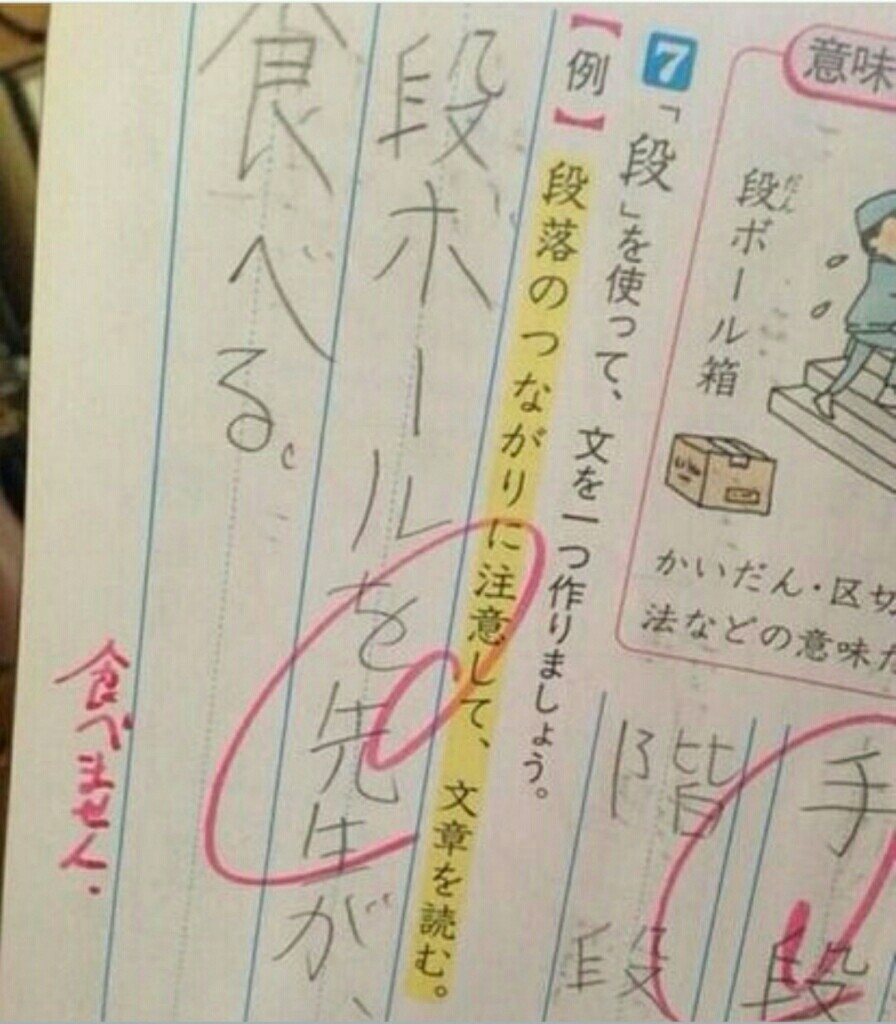 意味
段ボール箱
だん
かいだん・区切
法などの意味
手段
階段
7 「段」を使って、文を一つ作りましょう。
【例】段落のつながりに注意して、文章を読む。
段ボールを先生が、
食べる。
食べません.